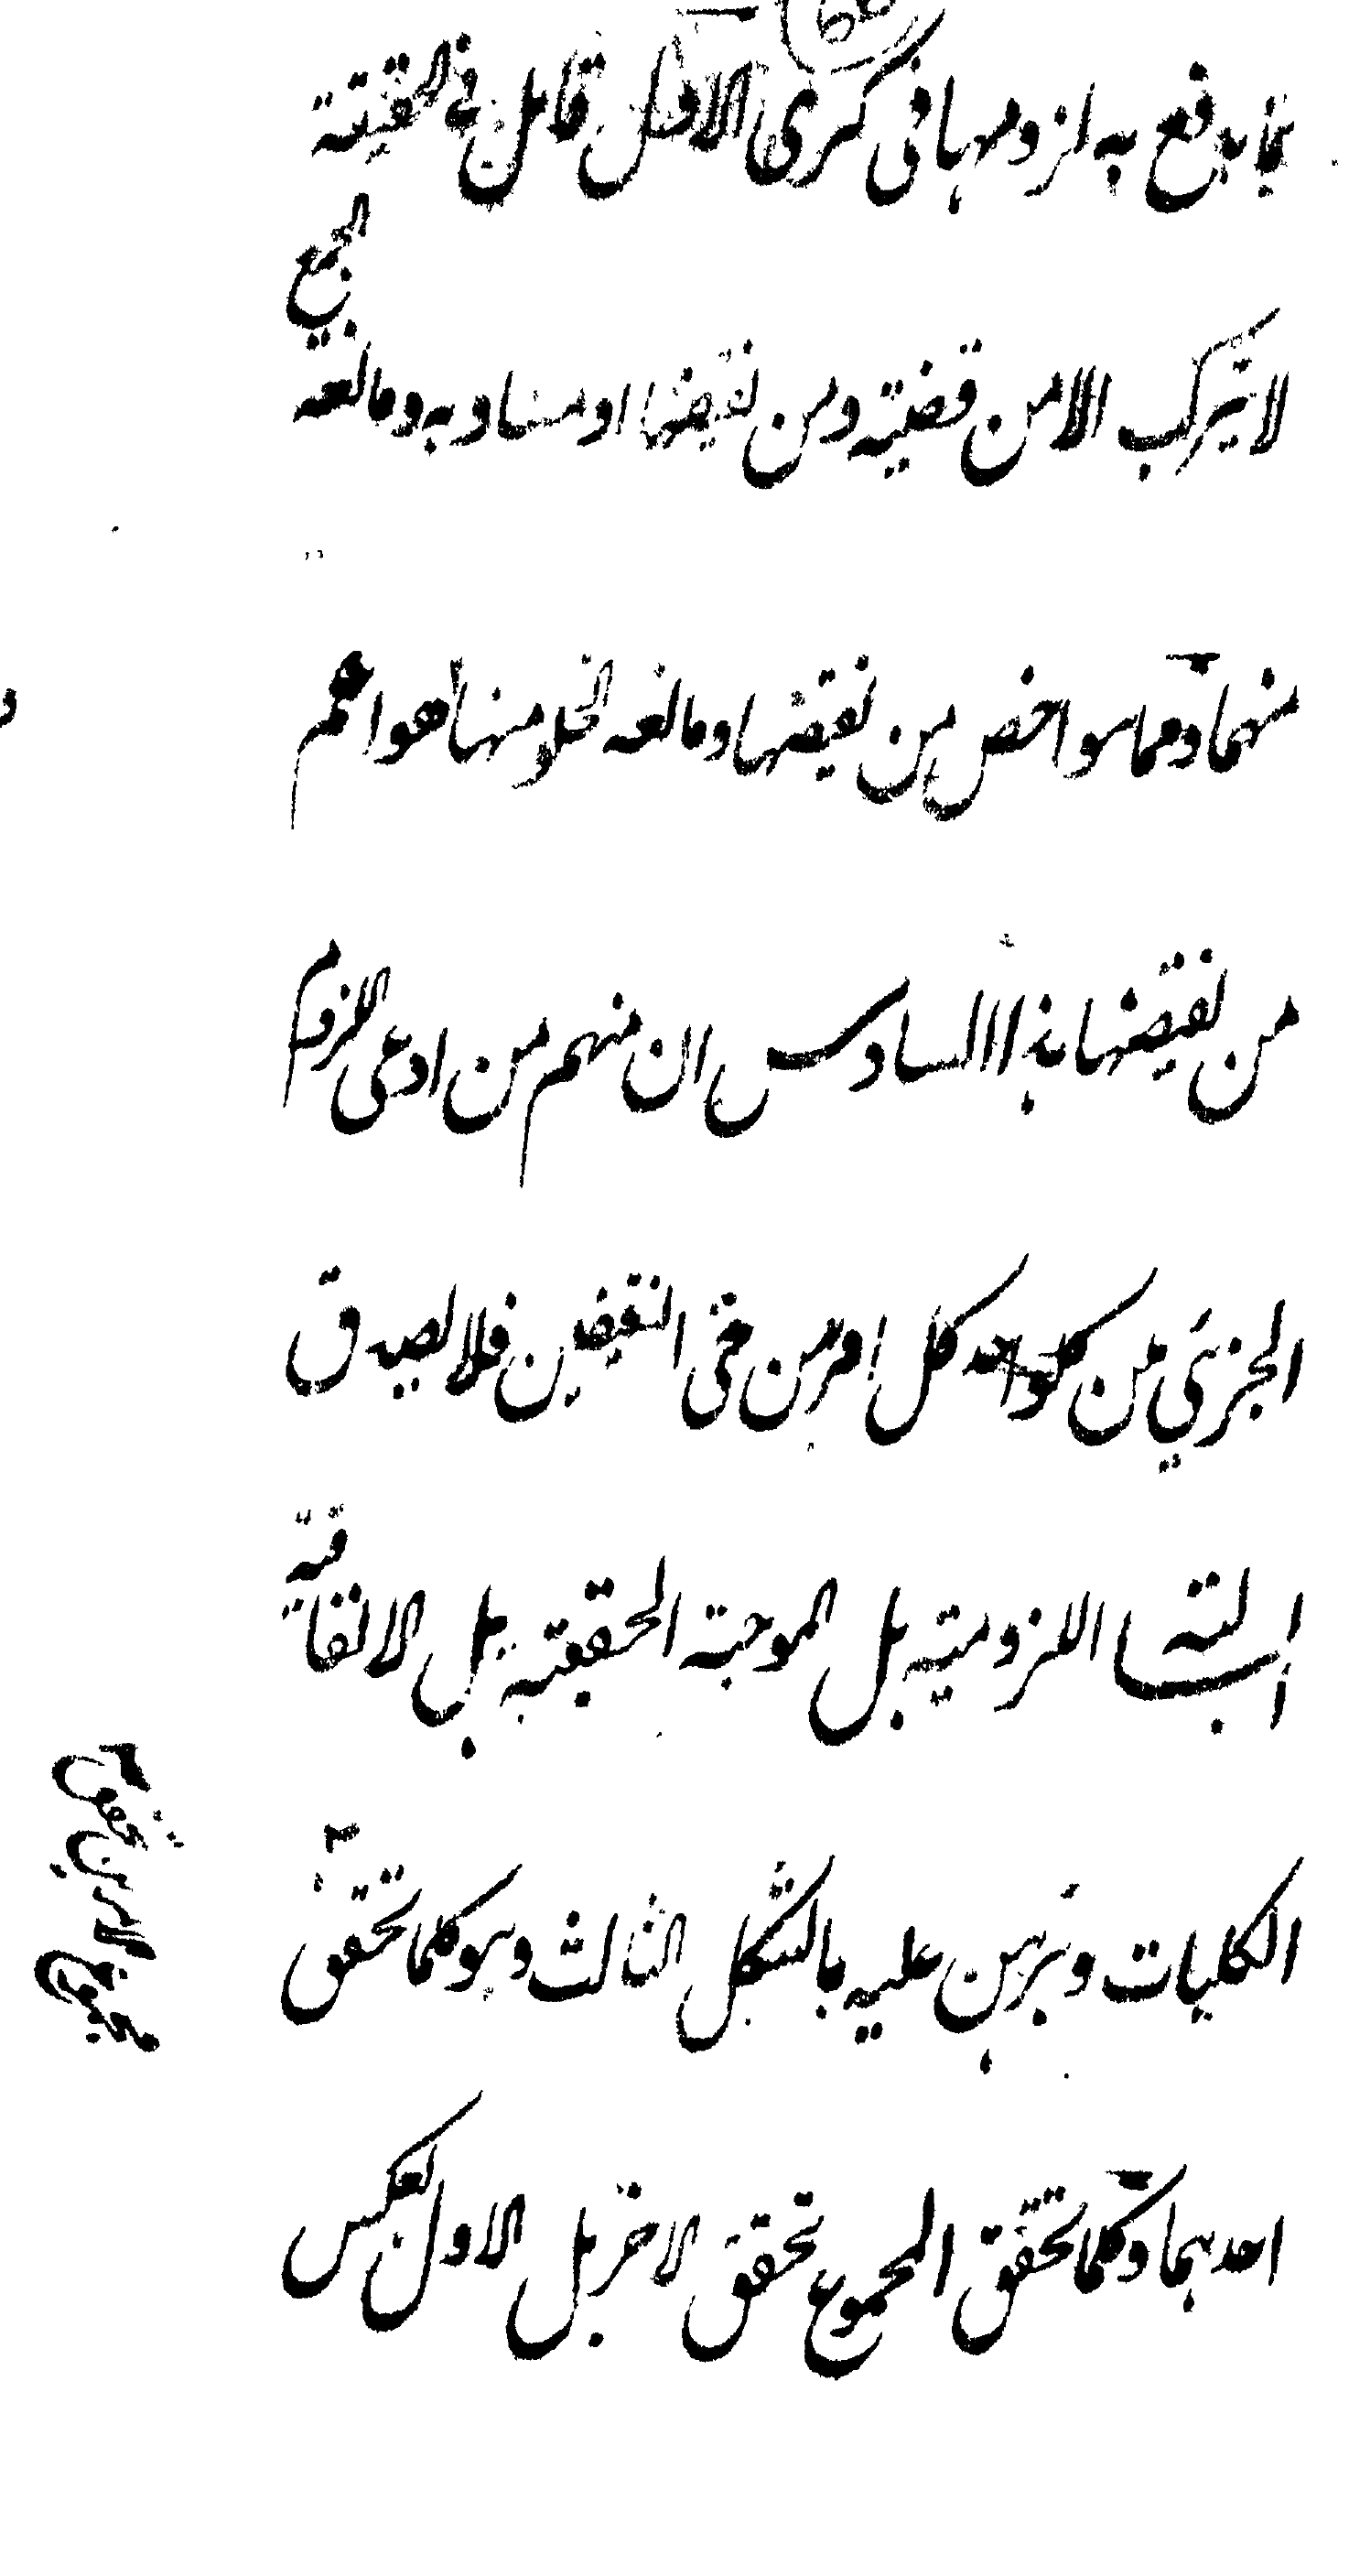 بما يدفع به لزومها في كبرى الاول قابل في الحقيقية
لا يتركب الا من قضية ومن نقيضها او مساويه ومانعة الجمع
منها ومما هو اخص من نقيضها ومانعه الخلو منها هو اعم
من نقيضها هذا السادس ان منهم من ادعى اللزوم
الجزئي من كل واحد كل امرين حتى النقيضين فلا يصدق
السالبته اللزومية بل الموجبته الحقيقية بل الاتفاقية
الكليات وبرهن عليه بالشكل الثالث وهو كلما تحقق
احدهما وكلما تحقق المجموع تحقق الاخر بل الاول بعكس